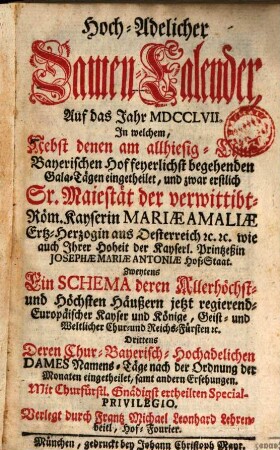 Hoch-Adelicher
Damen-Calender,
Auf das Jahr MDCCLVII.
In welchem,
Nebst denen am allhiesig-
Bayerischen Hof feyerlichst begehenden
Gala-Tägen eingetheilet, und zwar erstlich
Sr. Maiestät der verwittibt-
Röm. Kayserin MARIÆ AMALIÆ
Ertz-Herzogin aus Oesterreich ꝛc. ꝛc. wie
auch Ihrer Hoheit der Kayserl. Printzeßin
JOSEPHÆ MARIÆ ANTONIÆ Hof-Staat.
Zweytens
Ein SCHEMA deren Allerhöchst-
und Höchsten Häußern jetzt regierend-
Europäischer Kayser und Könige, Geist- und
Weltlicher Chur-und Reichs-Fürsten ꝛc.
Drittens
Deren Chur-Bayerisch-Hochadelichen
DAMES Namens-Täge nach der Ordnung der
Monaten eingetheilet, samt andern Ersehungen.
Mit Churfürstl. Gnädigst ertheilten Special-
PRIVILEGIO.
Verlegt durch Frantz Michael Leonhard Lehren-
beitl, Hof-Fourier.
München, gedruckt bey Johann Christoph Mayr.